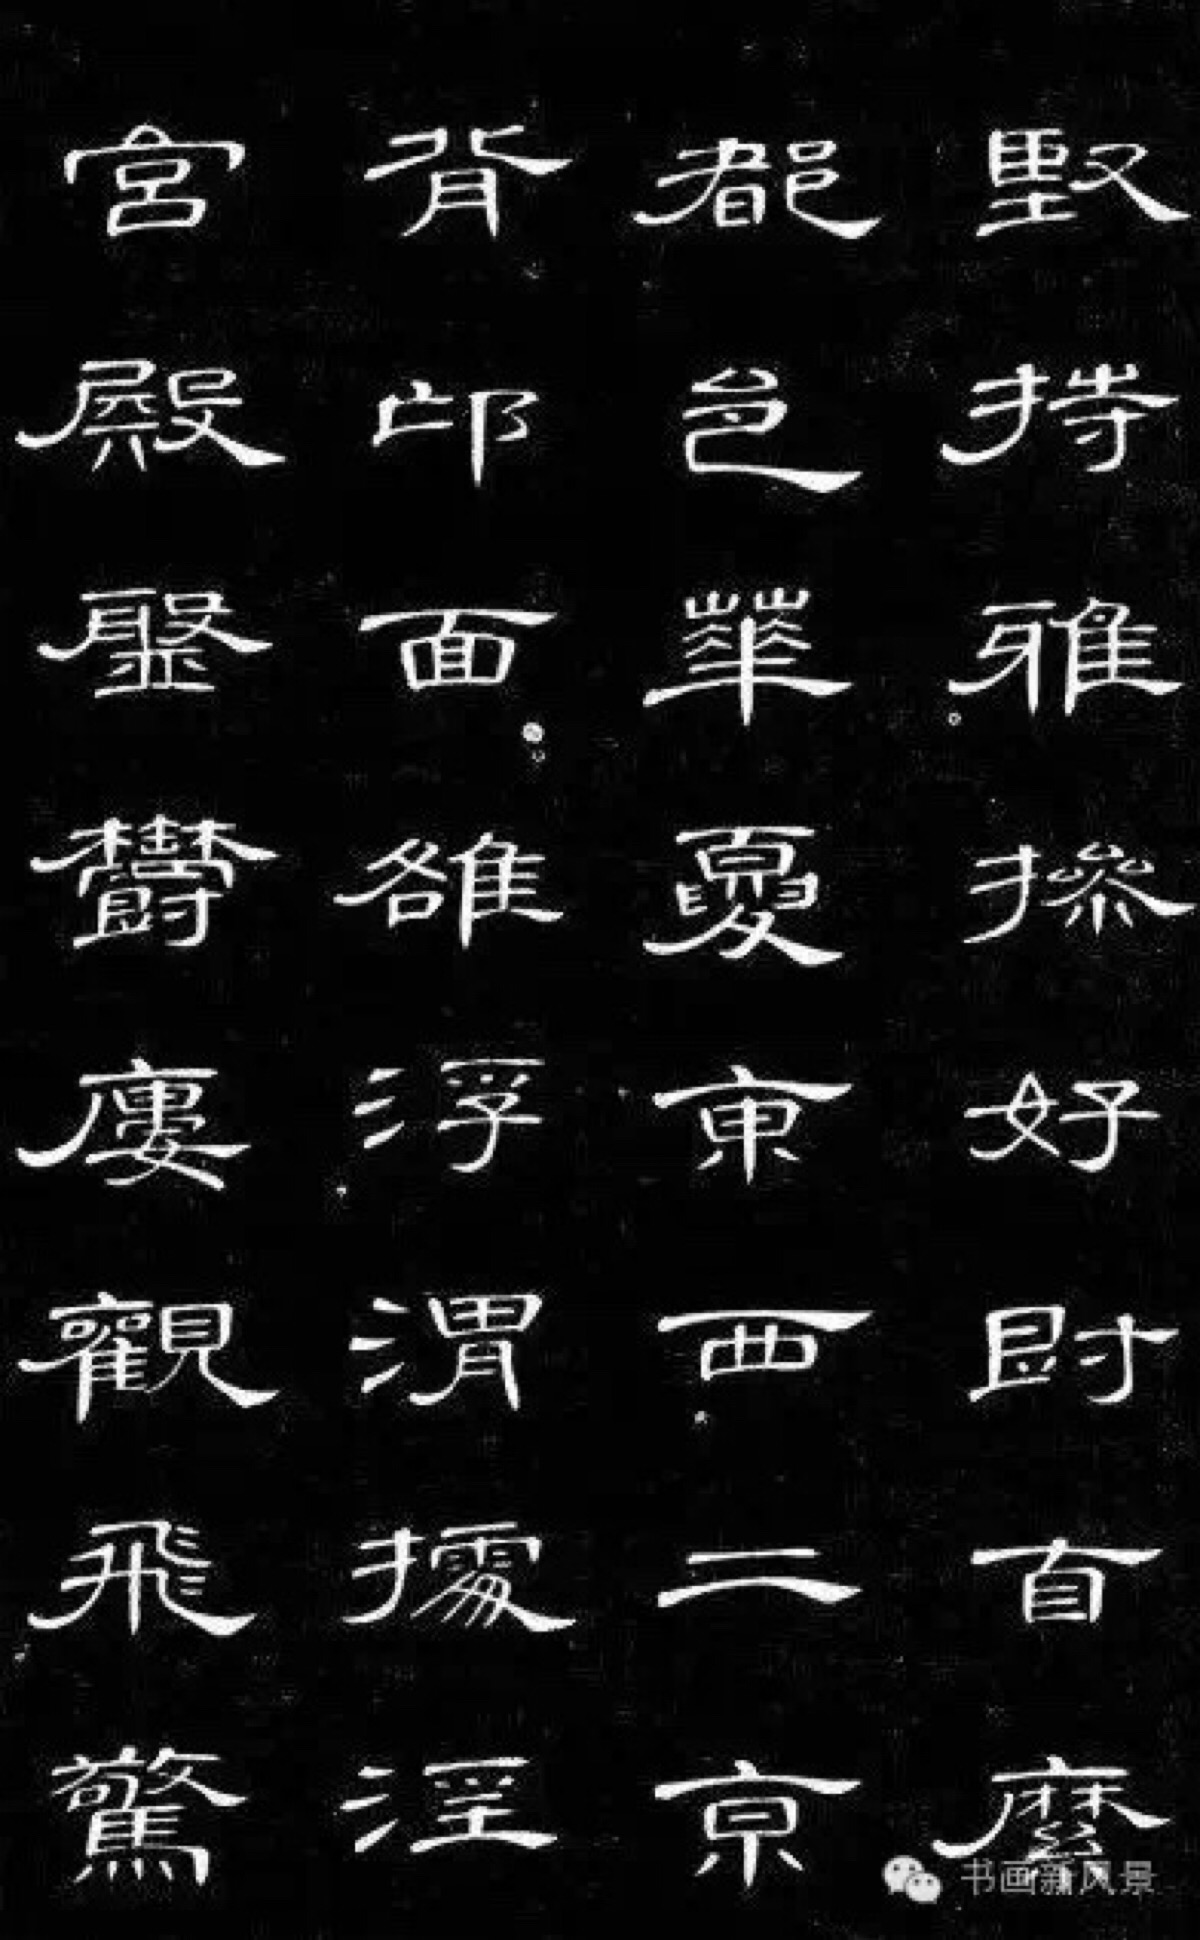 堅持雅操好爵自縻
都邑華夏東西二京
背邙面雒浮渭據涇
宮殿盤鬱廔觀飛驚
书画新风景